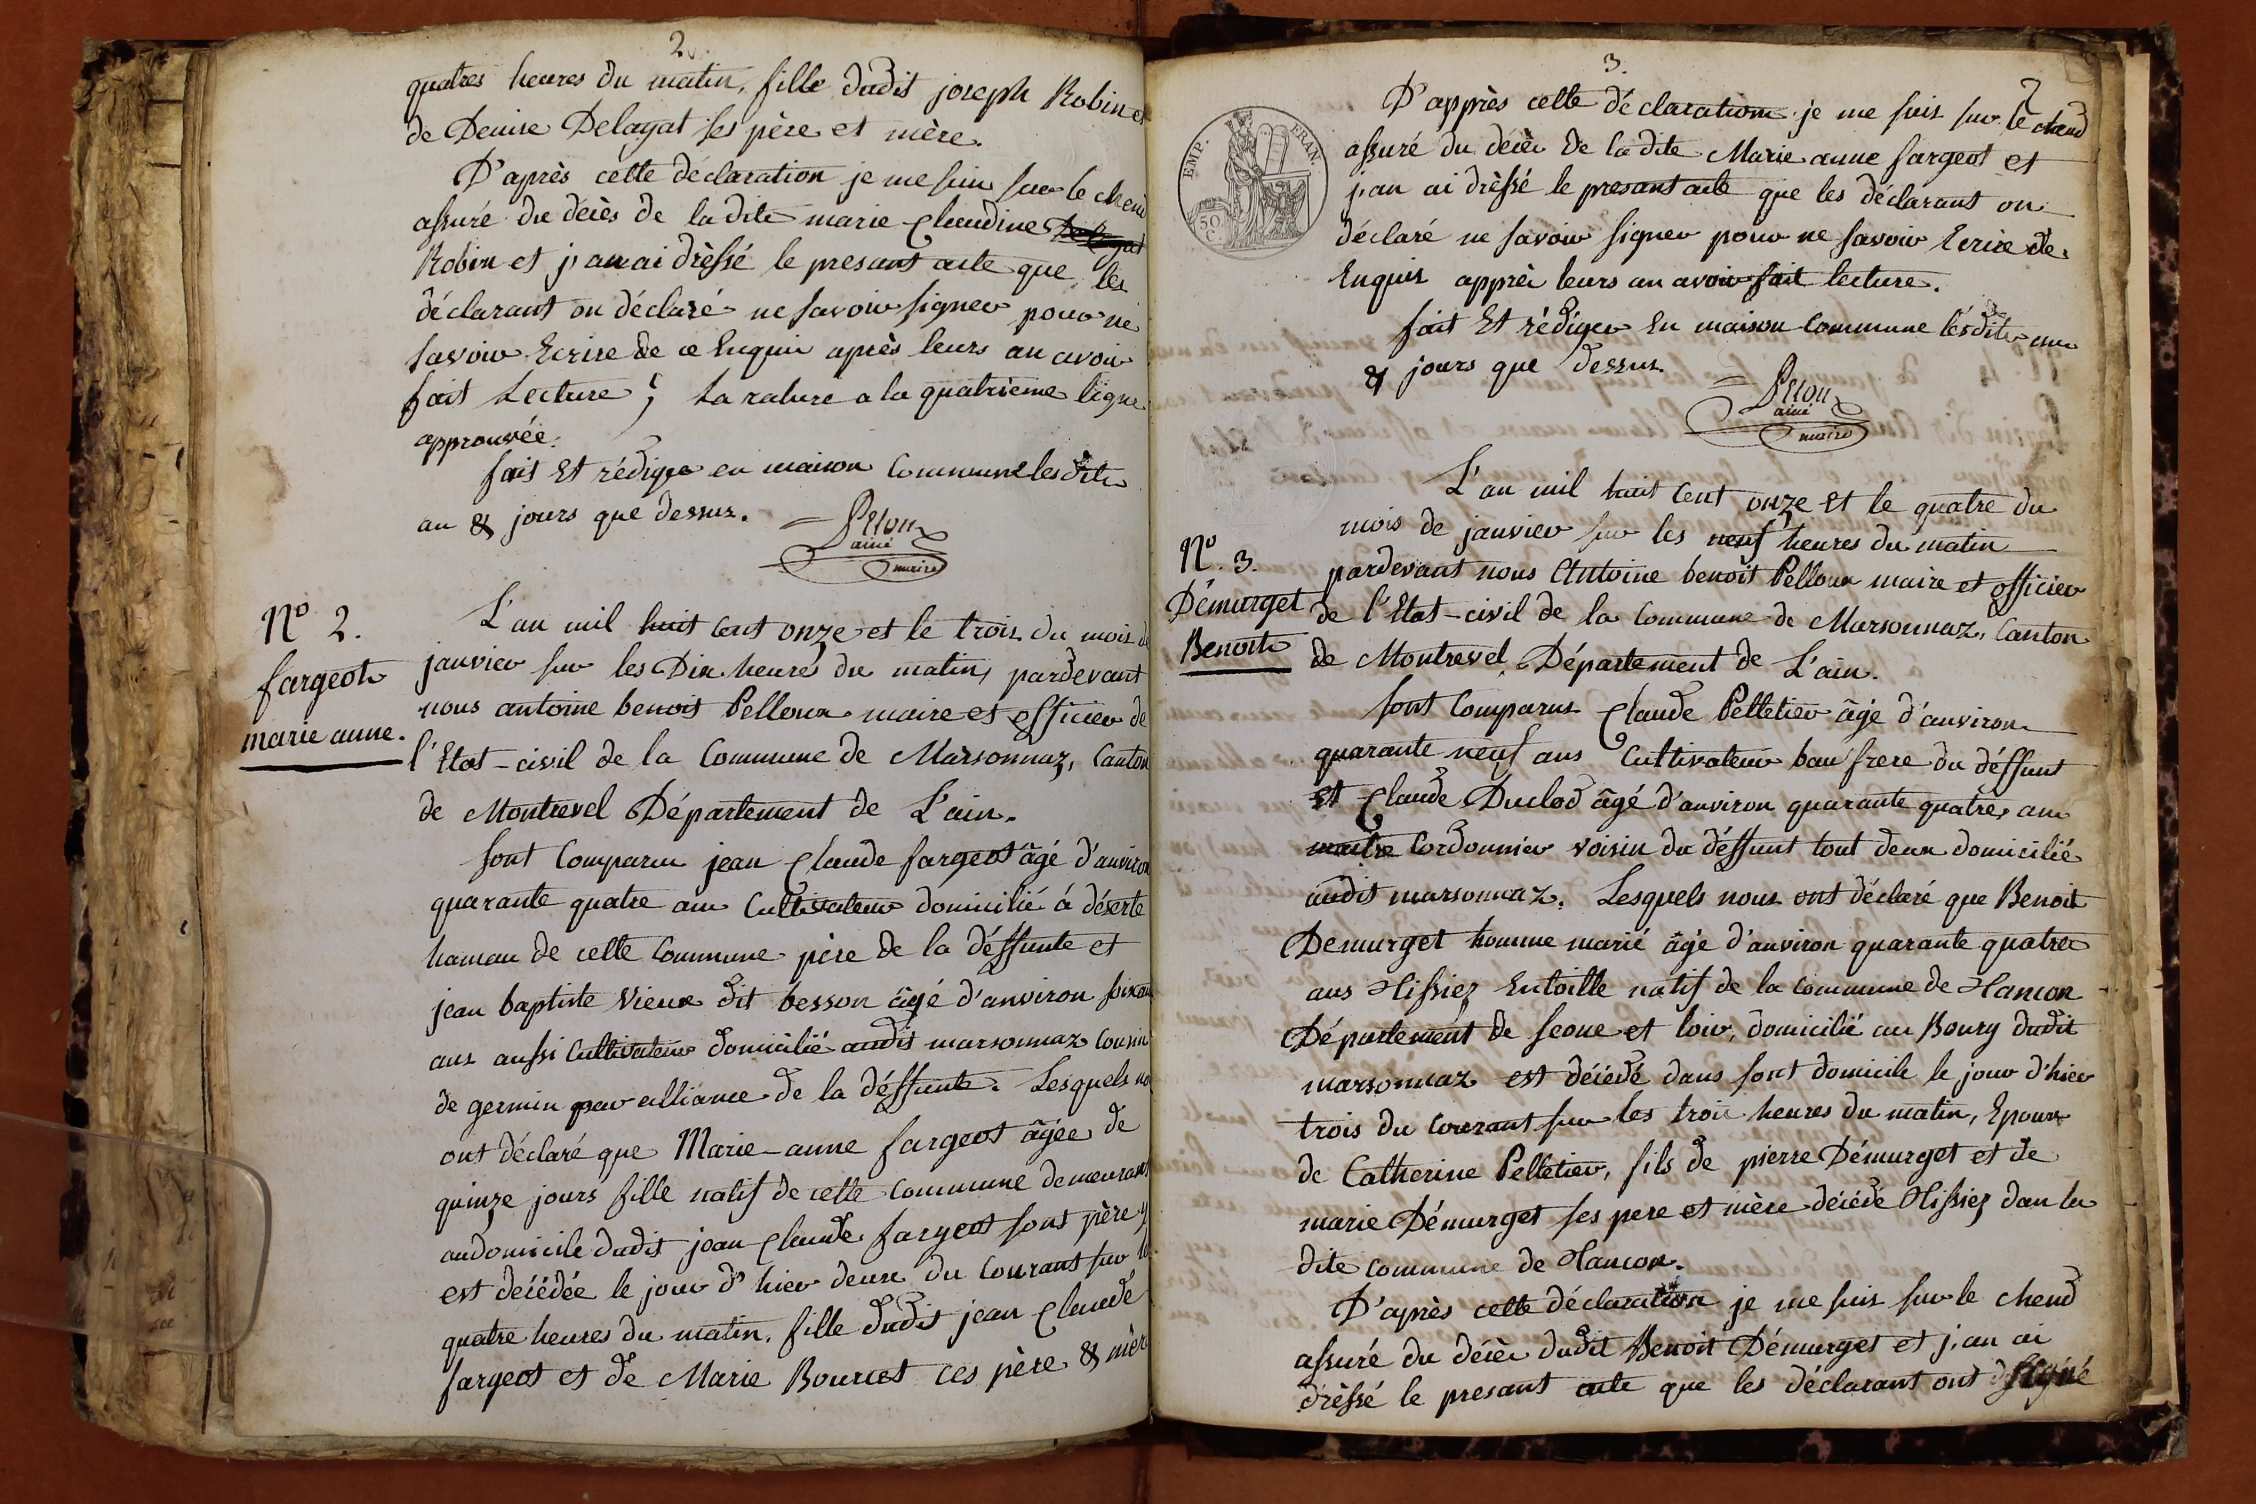 2.
quatres heures du matin, fille dudit joseph Robin et
de Denise Delayat ses père et mère.
D'après cette déclaration je me suis sur le cheud
assuré du décès de la dite marie claudine
Robin et j'an ai drèssé le presant acte que les
déclarant on déclaré ne savoir signer pour ne
savoir Ecrire de ce Enquis après leurs an avoir
fait Lecture ; La rature a la quatrième ligne
approuvée.
fait Et rédiger en maison Commune lesdits
an & jours que dessus.
Pelou
ainé
maire
Nº 2.
fargeot
marie anne.
L'an mil huit cent onze et le trois du mois de
janvier sur les Dix heures du matin, pardevant
nous antoine benoit Pelloux maire et officier de
l'Etat-civil de la Commune de Marsonnaz, Canton
de Montrevel Département de L'ain.
sont Comparu jean claude fargeot âgé d'anviron
quarante quatre ans Cultivateur domicilié á déserte
hamau de cette Commune père de la déffunte et
jean baptiste Vieux dit besson âgé d'anviron soixante
ans aussi Cultivateur domicilié audit marsonnaz Cousin
de germin par alliance de la déffunte. Lesquels nous
ont déclaré que Marie-anne fargeot âgée de
quinze jours fille natif de cette Commune demeurant
au domicile dudit jean claude fargeot sont père y
est décédée le jour d'hier deux du Courant sur les
quatre heures du matin, fille dudit jean claude
fargeot et de Marie Bourcet ces père & mère
3.
2
D'apprès cette déclaration je me suis sur le cheud
assuré du décès de la dite Marie anne fargeot et
j'an ai drèssé le presant acte que les déclarant on
déclaré ne savoir signer pour ne savoir Ecrire de
Enquis apprès leurs an avoir fait lecture.
fait Et rédiger En maison Commune lesdits an
& jours que dessus.
EMP. FRAN.
50
C.
Pelou
ainé
maire
Nº. 3.
Démurget
Benoit
L'an mil huit Cent onze Et le quatre du
mois de janvier sur les neuf heures du matin
pardevant nous Antoine benoit Pelloux maire et officier
de l'Etat-civil de la Commune de Marsonnaz, Canton
de Montrevel, Département de L'ain.
sont Comparus claude Pelletier âgé d'anviron
quarante neuf ans Cultivateur bau frere du déffunt
Et claude Duclod âgé d'anviron quarante quatre ans
maitre Cordonnier voisin du déffunt tout deux domicilié
audit marsonnaz. Lesquels nous ont déclaré que Benoit
Demurget homme marié âgé d'anviron quarante quatre
ans Tissiez Entoille natif de la Commune de
Département de seone et loir, domicilié au Bourg dudit
marsonnaz est décédé dans sont domicile le jour d'hier
trois du Courant sur les trois heures du matin, Epoux
de Catherine Pelletier, fils de pierre Démurget et de
marie Démurget ses pere et mère décéde Tissiez dan la
dite commune de
D'après cette déclaration je me suis sur le cheud
assuré du décès dudit Benoit Démurget et j'an ai
drèssé le presant acte que les déclarant ont signé